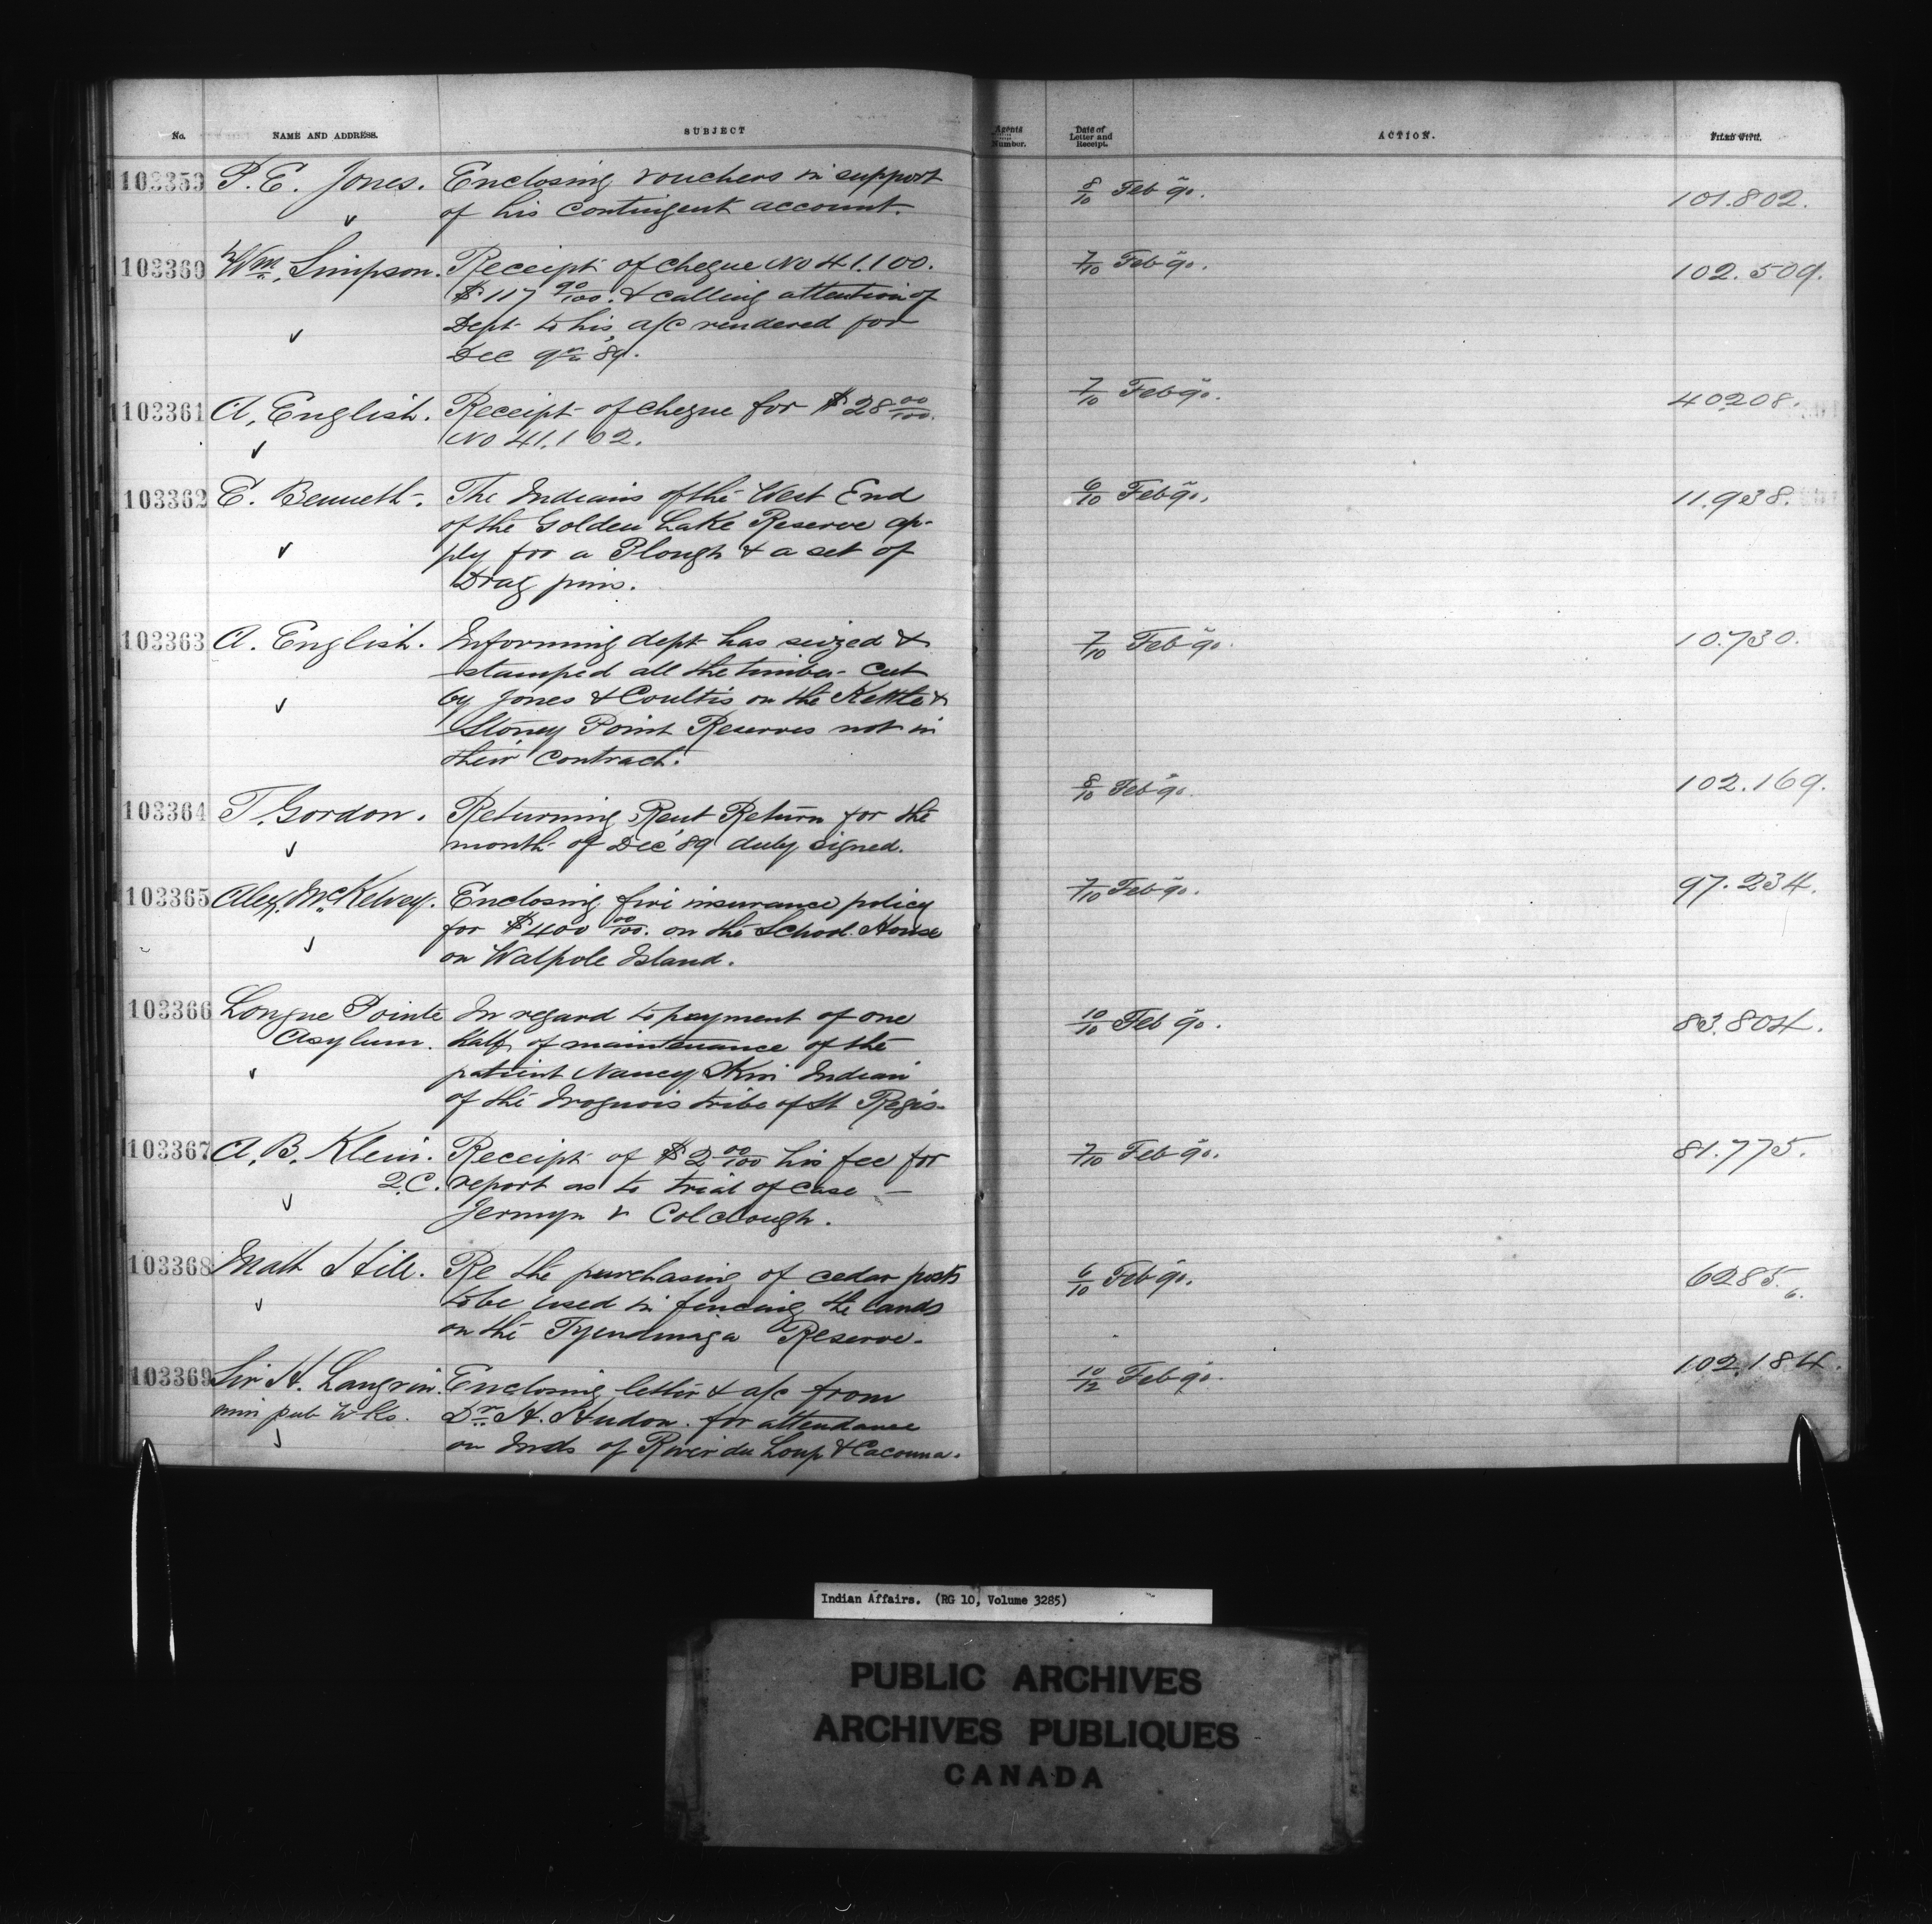 No. NAME AND ADDRESS. SUBJECT Agents Number. Date of Letter and Receipt. ACTION. FILED WITH.
103359 P. E. Jones. Enclosing vouchers in support 8/10 Feb 90. 101.802.
of his contingent account.
103360 Wm. Simpson. Receipt of cheque No 41.100. 7/10 Feb 90. 102.509.
$117 90/100. & calling attention of
Dept to his a/c rendered for
Dec qr '89.
103361 A. English. Receipt of cheque for $28 00/100. 7/10 Feb 90. 40208.
No 41.102.
103362 E. Bennett. The Indians of the West End 6/10 Feb 90. 11.938.
of the Golden Lake Reserve ap-
ply for a Plough & a set of
Drag pins.
103363 A. English. Informing dept has seized & 7/10 Feb 90. 10.730.
stamped all the timber cut
by Jones & Coultis on the Kettle &
Stoney Point Reserves not in
their contract.
103364 T. Gordon. Returning Rent Return for the 8/10 Feb 90. 102.169.
month of Dec '89 duly signed.
103365 Alex. McKelvey. Enclosing fire insurance policy 7/10 Feb 90. 97.234.
for $400 00/100. on the School House
on Walpole Island.
103366 Longue Pointe In regard to payment of one 10/10 Feb 90. 83.804.
Asylum. half of maintenance of the
patient Nancy Indian
of the Iroquois tribe of St Regis.
103367 A. B. Klein. Receipt of $2 00/100 his fee for 7/10 Feb 90. 81.775.
Q.C. report as to trial of case —
Jermyn v Colclough.
103368 Matt Hill. Re the purchasing of cedar posts 6/10 Feb 90. 6285. 6.
to be used in fencing the lands
on the Tyendinaga Reserve.
103369 Sir H. Langevin. Enclosing letter & a/c from 10/12 Feb 90. 102.184.
min pub Wks. Dr. H. Hudon. for attendance
on Inds of River du Loup & Cacouna.
Indian Affairs. (RG 10, Volume 3285)
PUBLIC ARCHIVES
ARCHIVES PUBLIQUES
CANADA